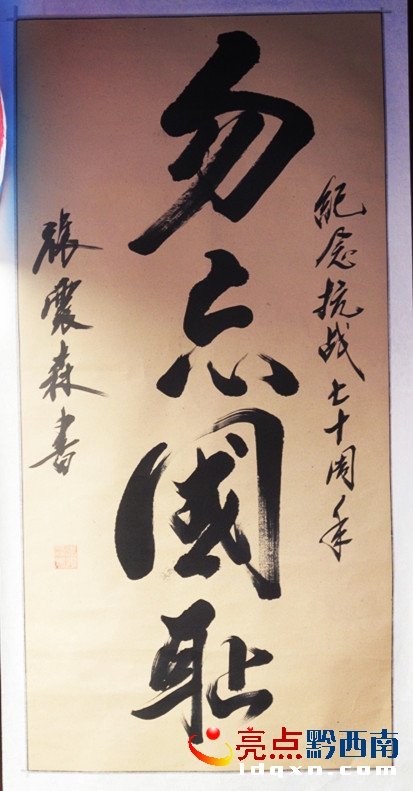 紀念抗战七十周年
勿忘國耻
張震森書
亮点黔西南
ldqxn.com